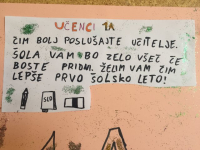 UČENCI 1A
ČIM BOLJ POSLUŠAJTE UČITELJE.
ŠOLA VAM BO ZELO VŠEČ ČE
BOSTE PRIDNI. ŽELIM VAM ČIM
LEPŠE PRVO ŠOLSKO LETO!
SLO